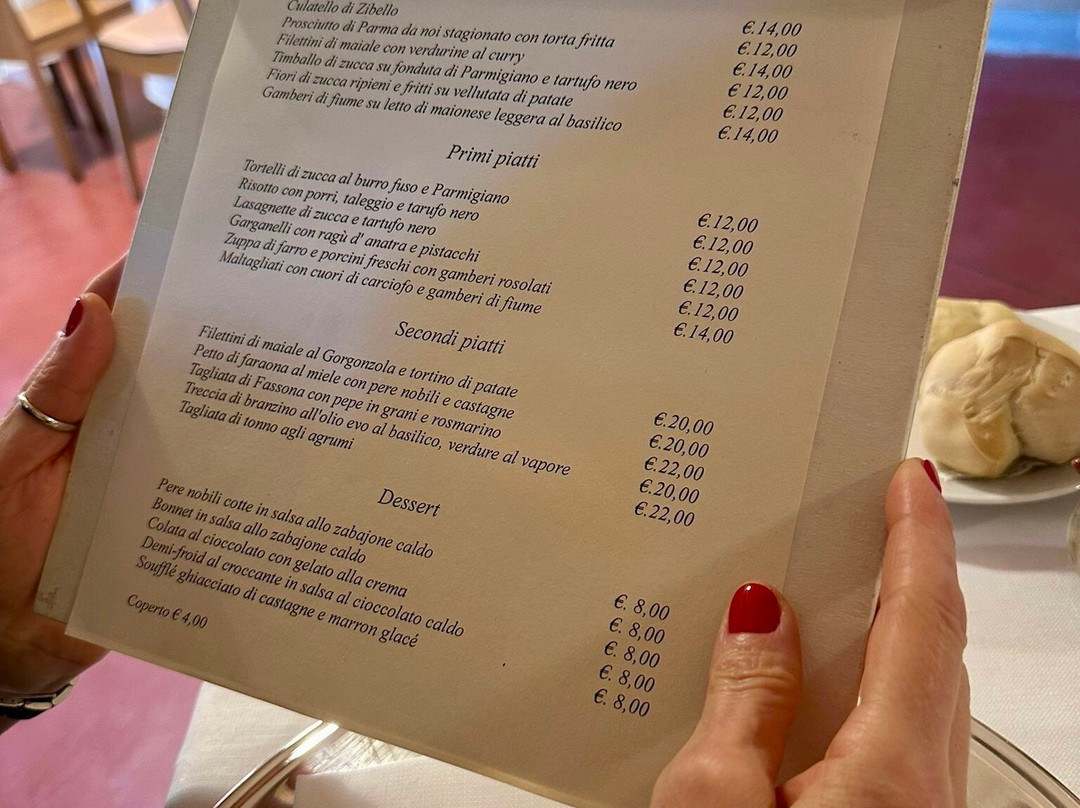 Culatello di Zibello €.14,00
Prosciutto di Parma da noi stagionato con torta fritta €.12,00
Filettini di maiale con verdurine al curry €.14,00
Timballo di zucca su fonduta di Parmigiano e tartufo nero € 12,00
Fiori di zucca ripieni e fritti su vellutata di patate €.12,00
Gamberi di fiume su letto di maionese leggera al basilico €.14,00
Primi piatti
Tortelli di zucca al burro fuso e Parmigiano €.12,00
Risotto con porri, taleggio e tarufo nero €.12,00
Lasagnette di zucca e tartufo nero €.12,00
Garganelli con ragù d' anatra e pistacchi €.12,00
Zuppa di farro e porcini freschi con gamberi rosolati €.12,00
Maltagliati con cuori di carciofo e gamberi di fiume €.14,00
Secondi piatti
Filettini di maiale al Gorgonzola e tortino di patate €.20,00
Petto di faraona al miele con pere nobili e castagne €.20,00
Tagliata di Fassona con pepe in grani e rosmarino €.22,00
Treccia di branzino all'olio evo al basilico, verdure al vapore €.20,00
Tagliata di tonno agli agrumi €.22,00
Dessert
Pere nobili cotte in salsa allo zabajone caldo €. 8,00
Bonnet in salsa allo zabajone caldo €. 8,00
Colata al cioccolato con gelato alla crema €. 8,00
Demi-froid al croccante in salsa al cioccolato caldo €. 8,00
Soufflé ghiacciato di castagne e marron glacé €. 8,00
Coperto € 4,00